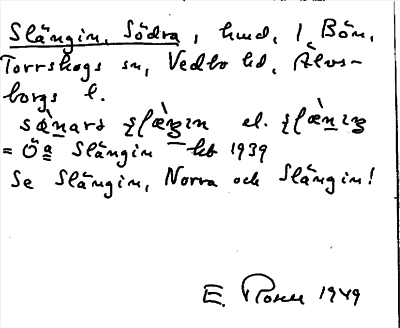 Slängin, Södra, hmd, i Bön,
Torrskogs sn, Vedbo hd, Älvs-
borgs l.
sæ̀nard el.
= Öa Slängin 1939
Se Slängin, Norra och Slängin!
E. 1949